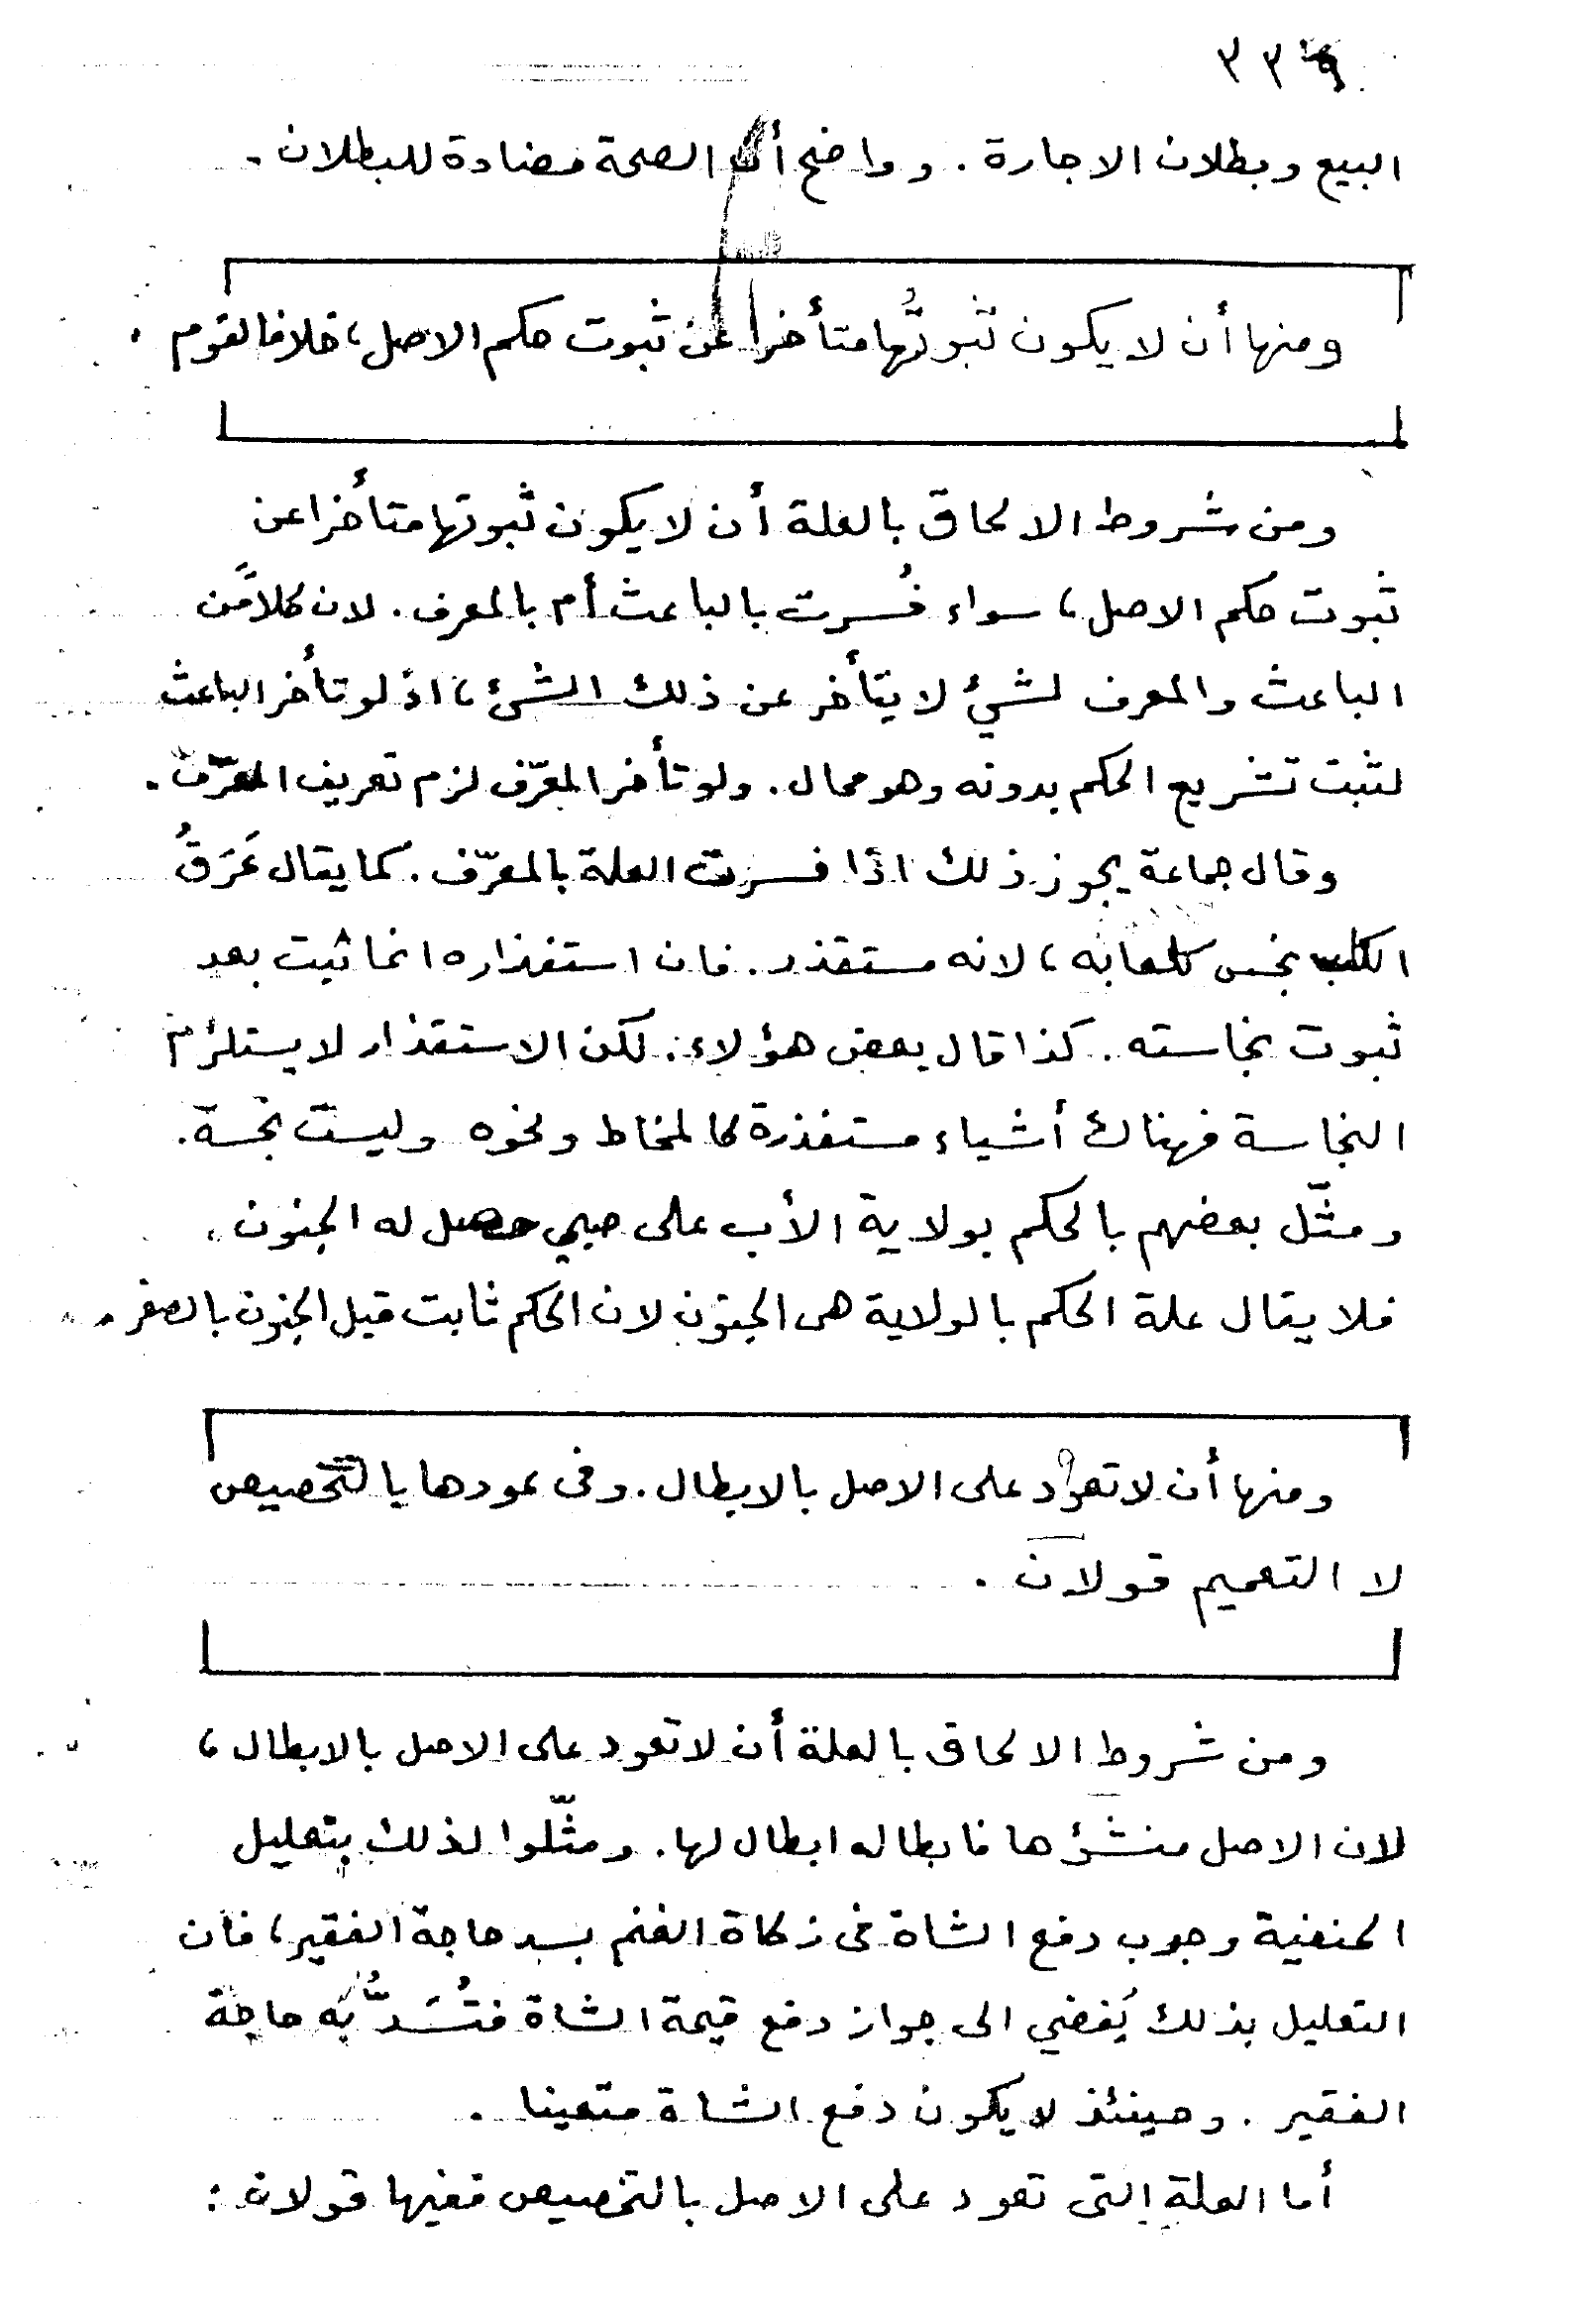 ٣٣٩
البيع وبطلان الاجارة . وواضح أن الصحة مضادة للبطلان .
ومنها أن لا يكون ثبوتُها متأخرا عن ثبوت حكم الاصل، خلافا لقوم .
ومن شروط الالحاق بالعلة أن لا يكون ثبوتها متأخرا عن
ثبوت حكم الاصل، سواء فُسرت بالباعث أم بالمعرف . لان كلاًّ من
الباعث والمعرف لشيءٍ لا يتأخر عن ذلك الشئ، اذ لو تأخر الباعث
لثبت تشريع الحكم بدونه وهو محال . ولو تأخر المعرّف لزم تعريف المعرّف .
وقال جماعة يجوز ذلك اذا فسرت العلة بالمعرّف . كما يقال عَرَقُ
الكلب نجس كلعابه، لانه مستقذر . فان استقذاره انما ثبت بعد
ثبوت نجاسته . كذا قال بعض هؤلاء . لكن الاستقذار لا يستلزم
النجاسة فهناك أشياء مستقذرة كالمخاط ونحوه وليست نجسة .
ومثّل بعضهم بالحكم بولاية الأب على صبي حصل له الجنون .
فلا يقال علة الحكم بالولاية هى الجنون لان الحكم ثابت قبل الجنون بالصغر .
ومنها أن لا تعود على الاصل بالابطال . وفى عودها بالتخصيص
لا التعميم قولان .
ومن شروط الالحاق بالعلة أن لا تعود على الاصل بالابطال،
لان الاصل منشؤها فابطاله ابطال لها . ومثّلوا لذلك بتعليل
الحنفية وجوب دفع الشاة فى زكاة الغنم بسد حاجة الفقير، فان
التعليل بذلك يُفضي الى جواز دفع قيمة الشاة فتُسَدُّ به حاجة
الفقير . وحينئذ لا يكون دفع الشاة متعينا .
أما العلة التى تعود على الاصل بالتخصيص ففيها قولان :